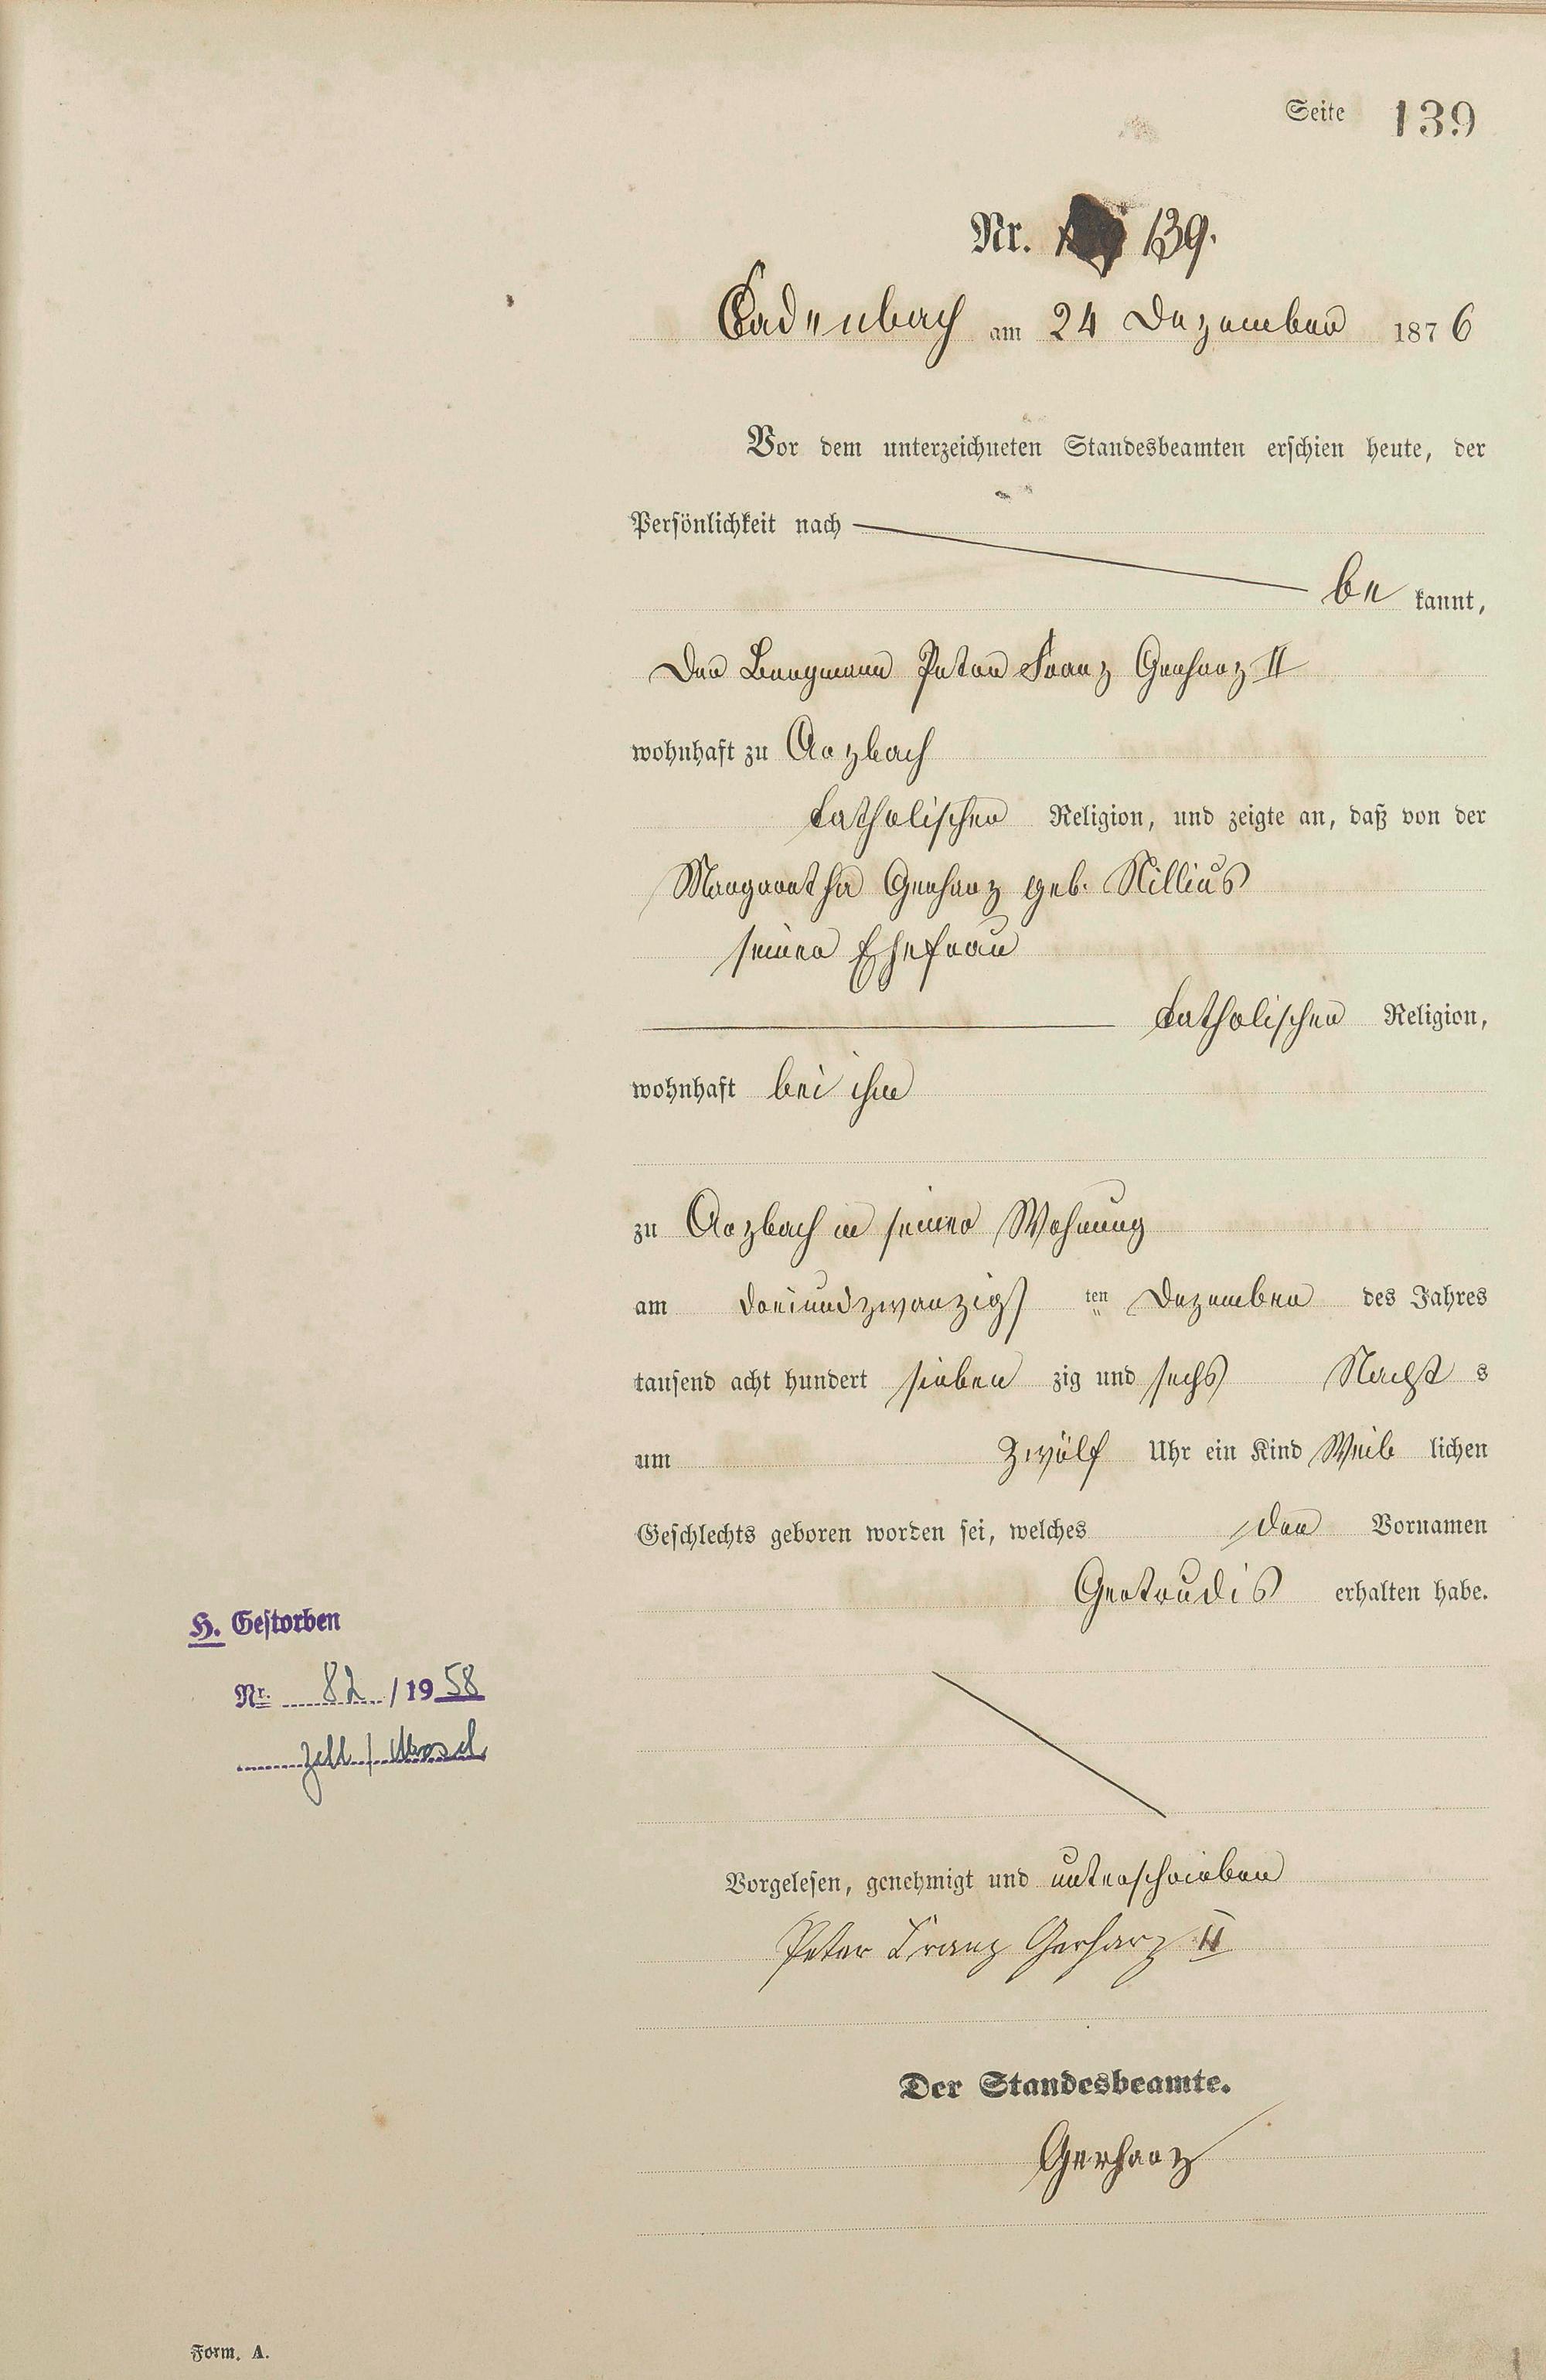 Seite 139
Nr. 139.
Cadenbach am 24 Dezember 1876
Vor dem unterzeichneten Standesbeamten erschien heute, der
Persönlichkeit nach
be kannt,
Der Bergmann Peter Franz Gerharz II
wohnhaft zu Arzbach
katholischer Religion, und zeigte an, daß von der
Margaretha Gerharz geb. Nillius
seiner Ehefrau
katholischer Religion,
wohnhaft bei ihm
zu Arzbach in seiner Wohnung
am dreiundzwanzigs ten Dezember des Jahres
tausend acht hundert sieben zig und sechs Nacht s
um Zwölf Uhr ein Kind Weib lichen
Geschlechts geboren worden sei, welches den Vornamen
Gertrudis erhalten habe.
H. Gestorben
Nr. 82 / 1958
Zell / Mosel
Vorgelesen, genehmigt und unterschrieben
Peter Franz Gerharz II
Der Standesbeamte.
Gerharz
Form. A.